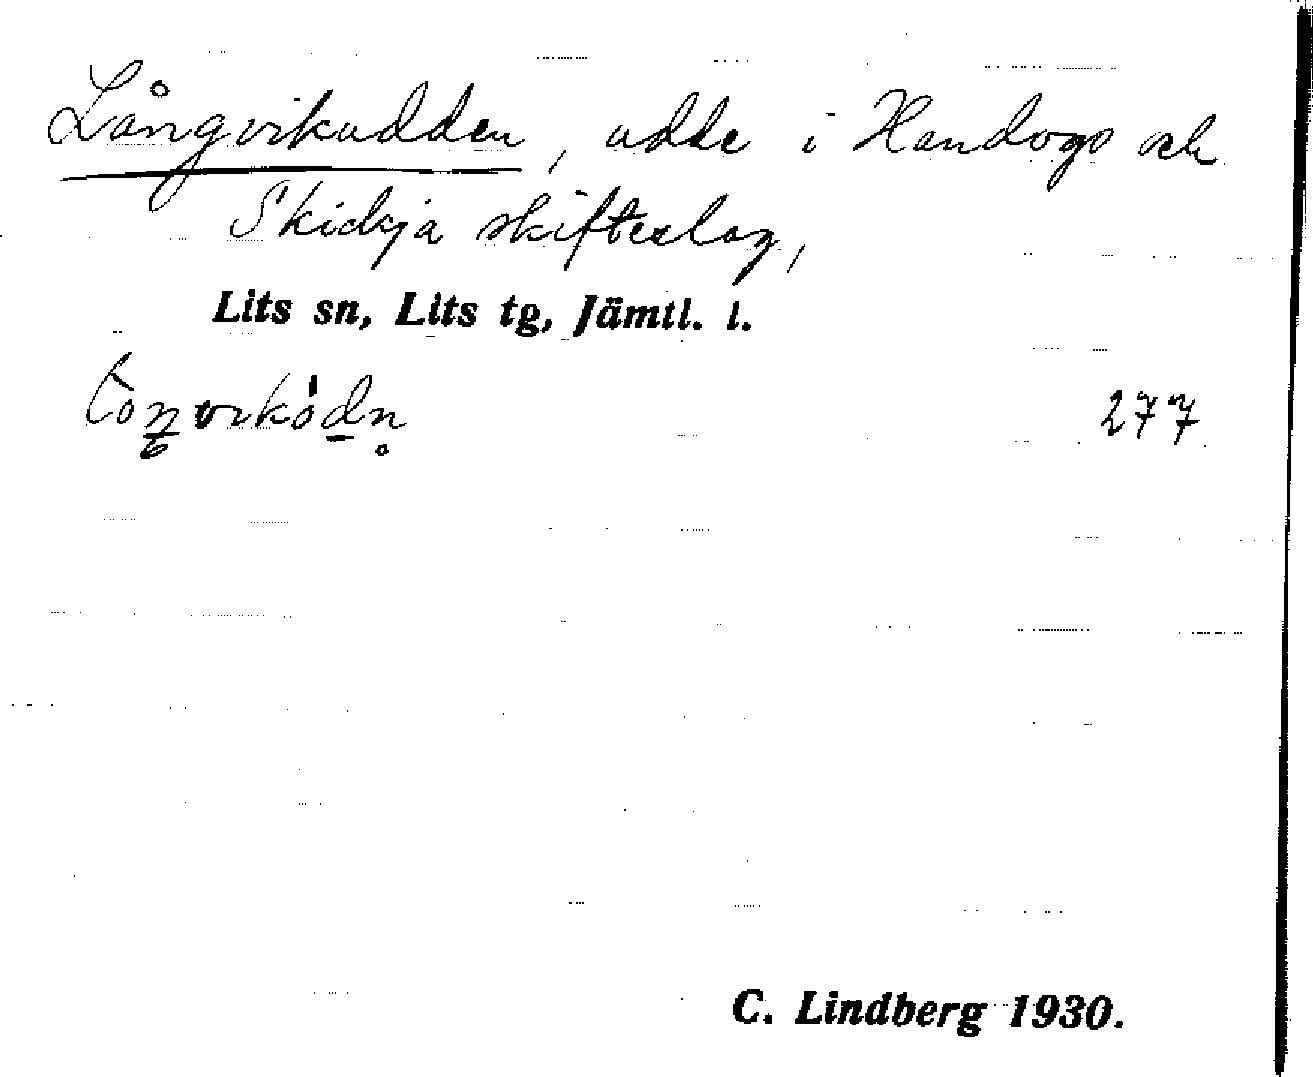 Långvikudden, udde i Handogs och
Skickja skifteslag,
Lits sn, Lits tg, Jämtl. l.
277
C. Lindberg 1930.